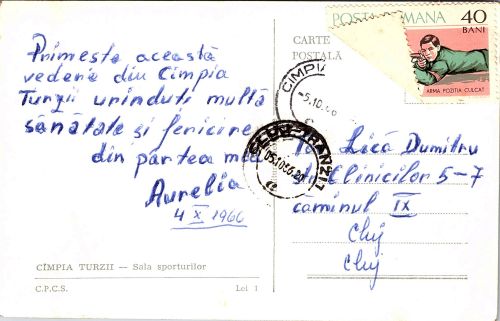 Primește această
vedere din Cîmpia
Turzii urînduți multă
sănătate și fericire
din partea mea
Aurelia
4 X 1966
CÎMPIA TURZII — Sala sporturilor
C.P.C.S.
Lei 1
CARTE
POȘTALĂ
POSTA ROMANA
40
BANI
ARMA POZITIA CULCAT
CÎMPI
-5.10.66
CLUJ TRANZIT
05.10.66.20
Lică Dumitru
Clinicilor 5-7
caminul IX
Cluj
Cluj